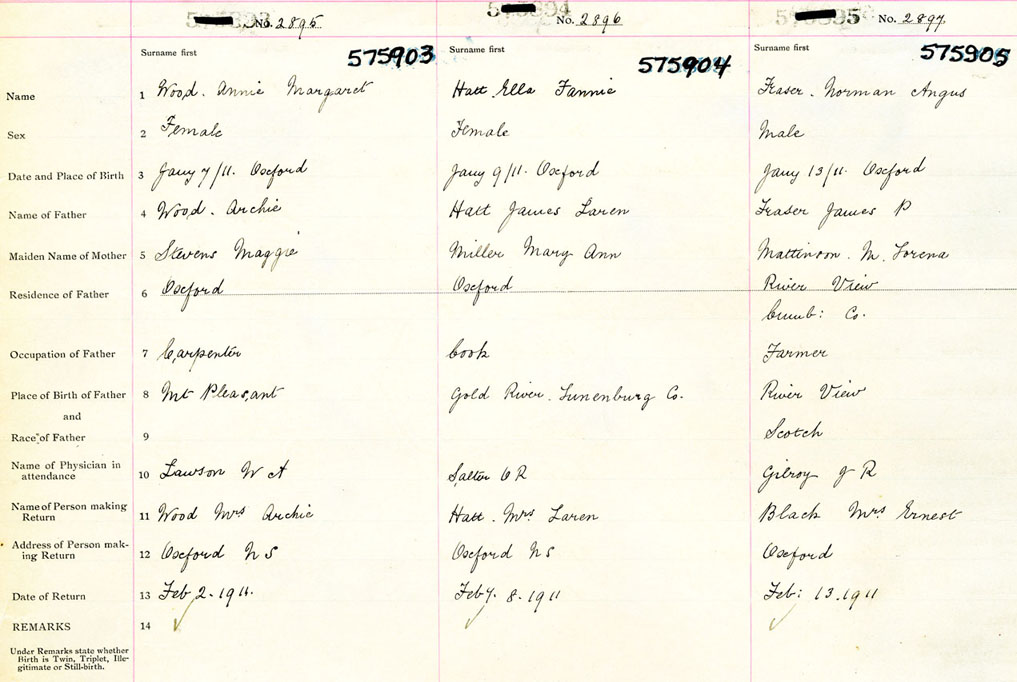 No. 2895 No. 2896 No. 2897
Surname first Surname first Surname first
575903 575904 575905
Name 1 Wood. Annie Margaret Hatt. Ella Fannie Fraser. Norman Angus
Sex 2 Female Female Male
Date and Place of Birth 3 Jany 7/11. Oxford Jany 9/11. Oxford Jany 13/11. Oxford
Name of Father 4 Wood. Archie Hatt James Laren Fraser James P
Maiden Name of Mother 5 Stevens Maggie Miller Mary Ann Mattinson. M. Lorena
Residence of Father 6 Oxford Oxford River View
Cumb: Co.
Occupation of Father 7 Carpenter Cook Farmer
Place of Birth of Father 8 Mt Pleasant Gold River. Lunenburg Co. River View
and
Race of Father 9 Scotch
Name of Physician in
attendance 10 Lawson W A Salter O R Gilroy J R
Name of Person making
Return 11 Wood Mrs Archie Hatt. Mrs Laren Black Mrs Ernest
Address of Person mak-
ing Return 12 Oxford N S Oxford N S Oxford
Date of Return 13 Feb 2. 1911. Feby. 8. 1911 Feb: 13. 1911
REMARKS 14
Under Remarks state whether
Birth is Twin, Triplet, Ille-
gitimate or Still-birth.